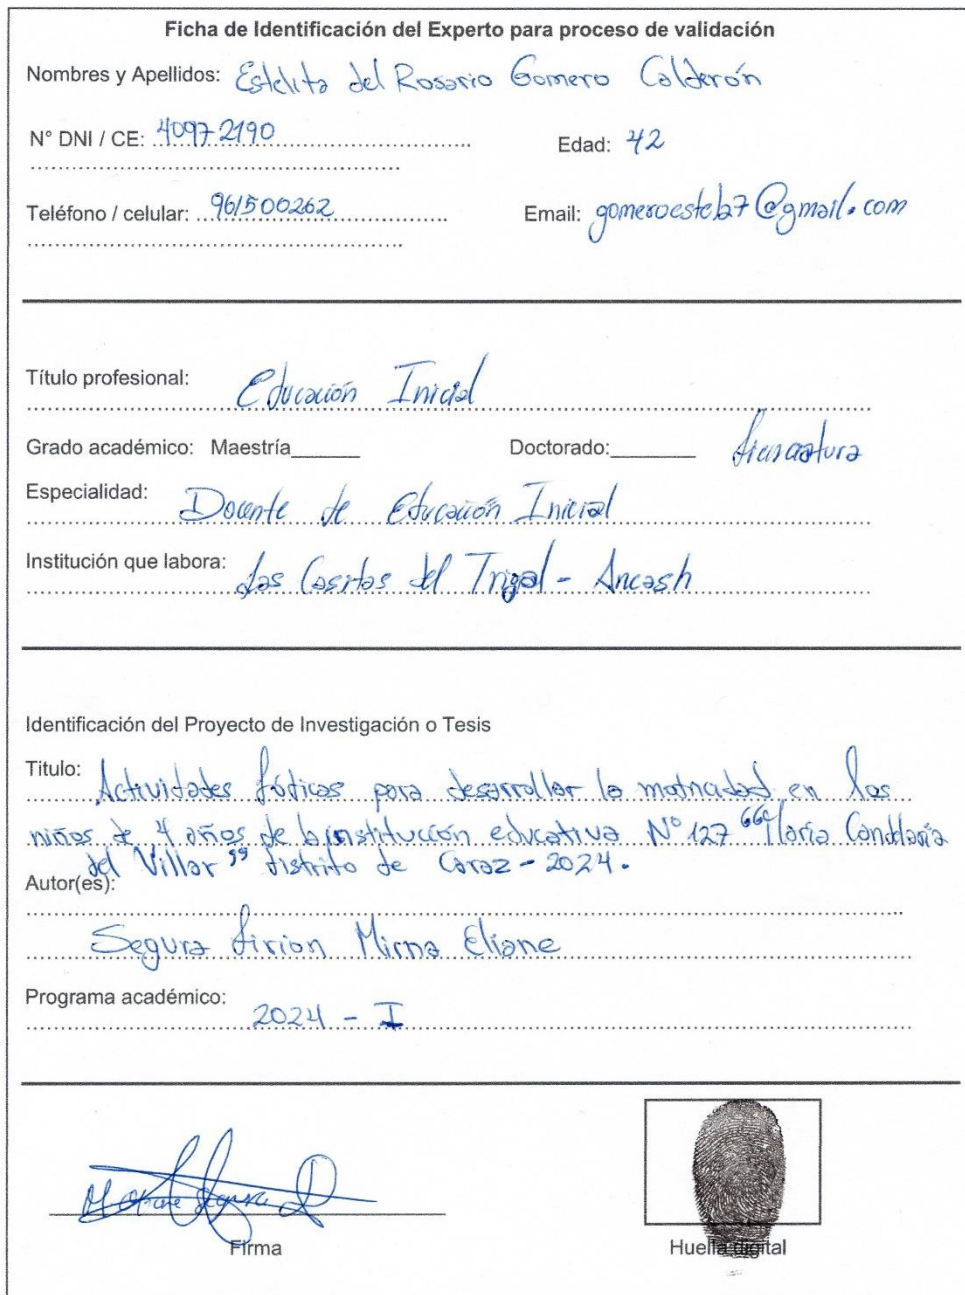 Ficha de Identificación del Experto para proceso de validación
Nombres y Apellidos: Estelita del Rosario Gomero Calderón
N° DNI / CE: 40972190 Edad: 42
Teléfono / celular: 961500262 Email: gomeroestela7@gmail.com
Título profesional: Educación Inicial
Grado académico: Maestría______ Doctorado:_______ Licenciatura
Especialidad: Docente de Educación Inicial
Institución que labora: Las Casitas del Trigal - Ancash
Identificación del Proyecto de Investigación o Tesis
Titulo: Actividades lúdicas para desarrollar la motricidad en los
niños de 4 años de la institución educativa N° 127 "María Candelaria
del Villar" distrito de Caraz - 2024.
Autor(es):
Segura Mirna Eliane
Programa académico: 2024 - I
Firma
Huella digital